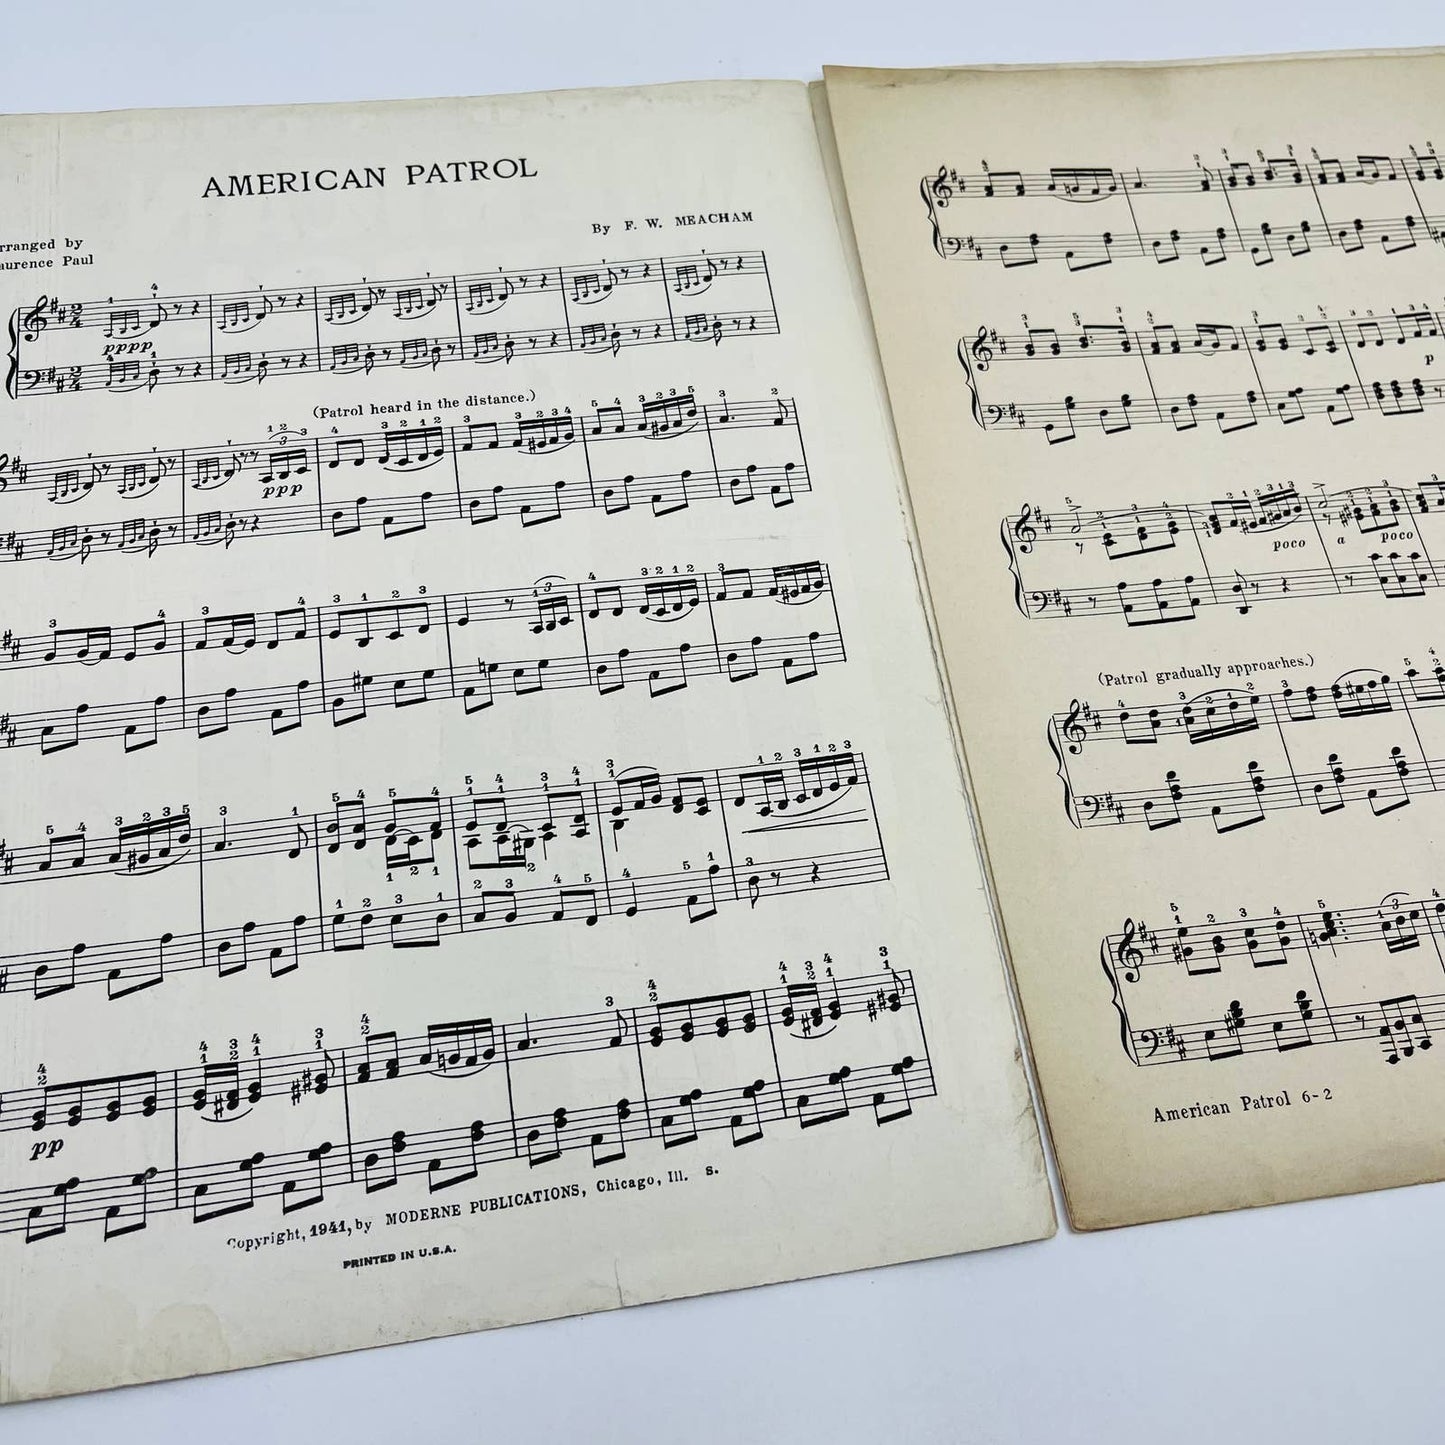 AMERICAN PATROL
By F. W. MEACHAM
rranged by
aurence Paul
pppp
(Patrol heard in the distance.)
ppp
pp
Copyright, 1941, by MODERNE PUBLICATIONS, Chicago, Ill. S.
PRINTED IN U.S.A.
p
poco a poco
(Patrol gradually approaches.)
American Patrol 6-2